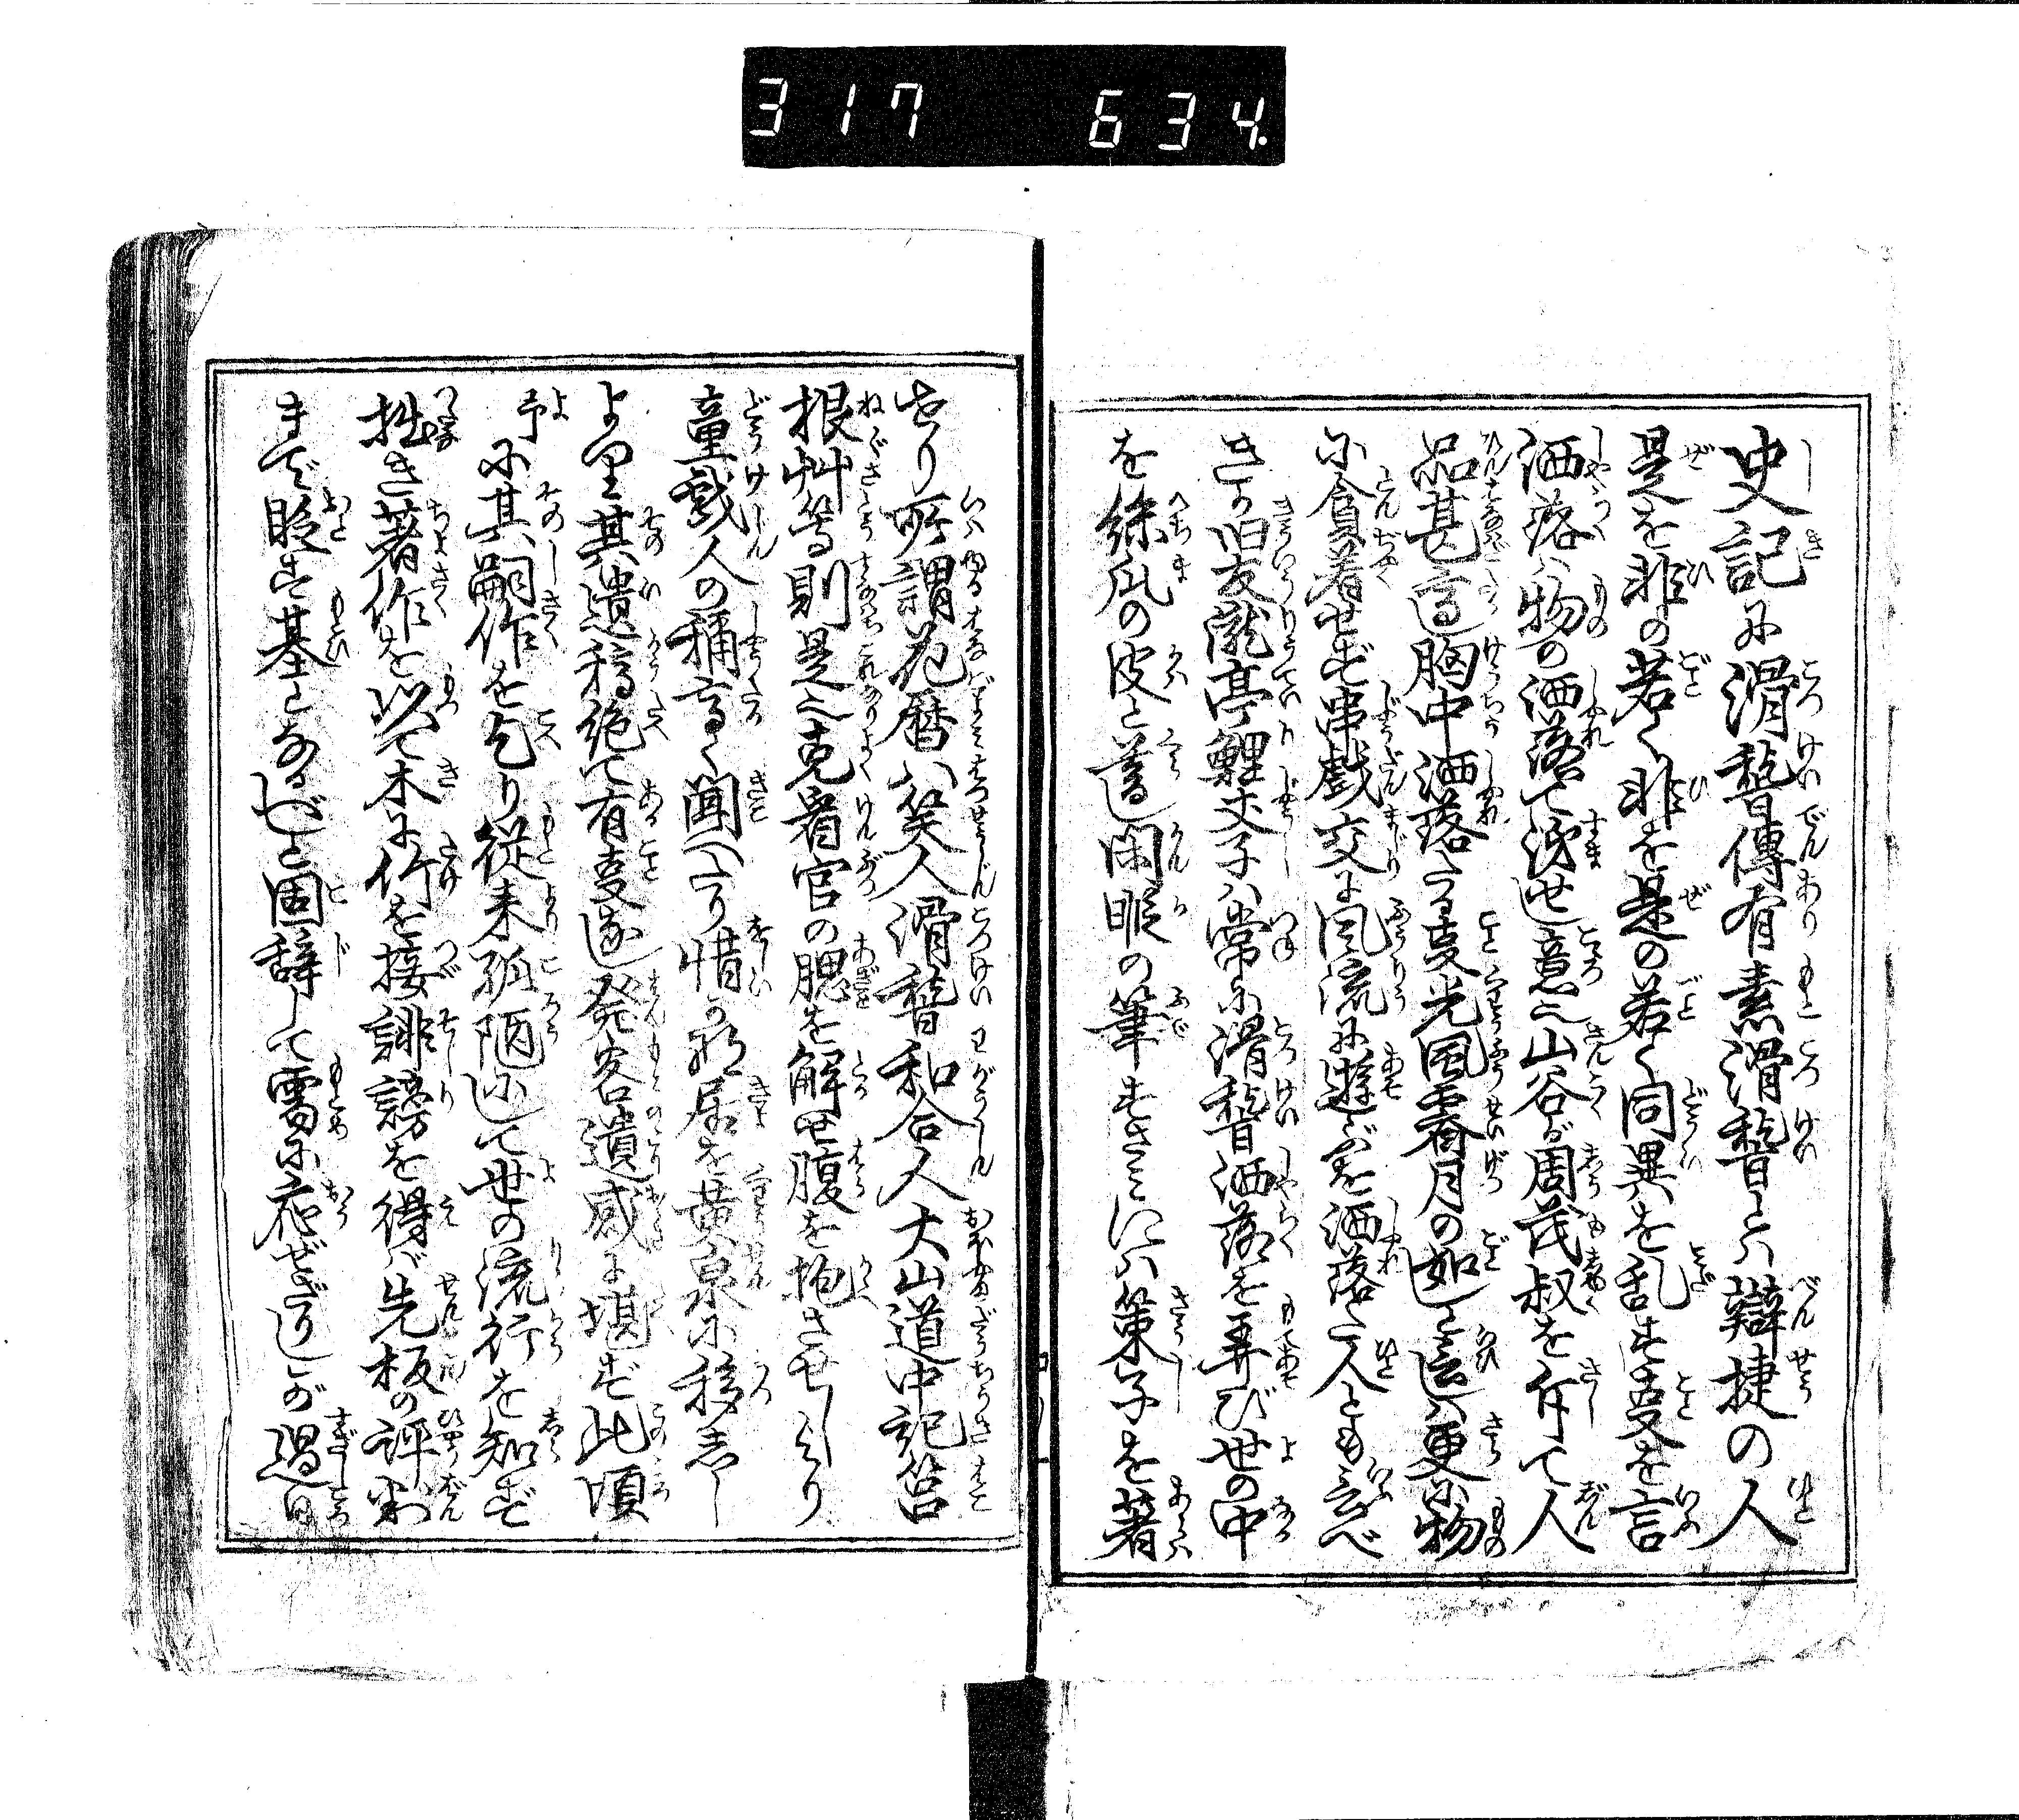 317 634
史記に滑稽傳有素滑稽とハ辯捷の人
是を非の若く非を是の若く同異を乱す事を言
洒落ハ物の洒落て済せし意と山谷が周茂叔を斥て人
品甚高し胸中洒落たる事光風霽月の如しと云しハ更に物
に貪着せず串戯交に風流に遊ぶを洒落た人とも言べ
きか旧友瀧亭鯉丈子ハ常に滑稽洒落を弄び世の中
を絲瓜の皮と蔑し閑暇の筆すさミにハ策子を著
せり所謂花暦八笑人滑稽和合人大山道中記筥
根艸等則是也克看官の腮を解せ腹を抱させしより
童戯人の稱高く聞へたり惜か那居を黄泉に移志し
より其遺稿絶て有事遂し発客遺感に堪ず此頃
予に其嗣作を乞り従来孤陋にして世の流行を知ず
拙き著作を以て木に竹を接誹謗を得バ先板の評判
まで貶す基となるべしと固辞して需に應ぜざりしが過日